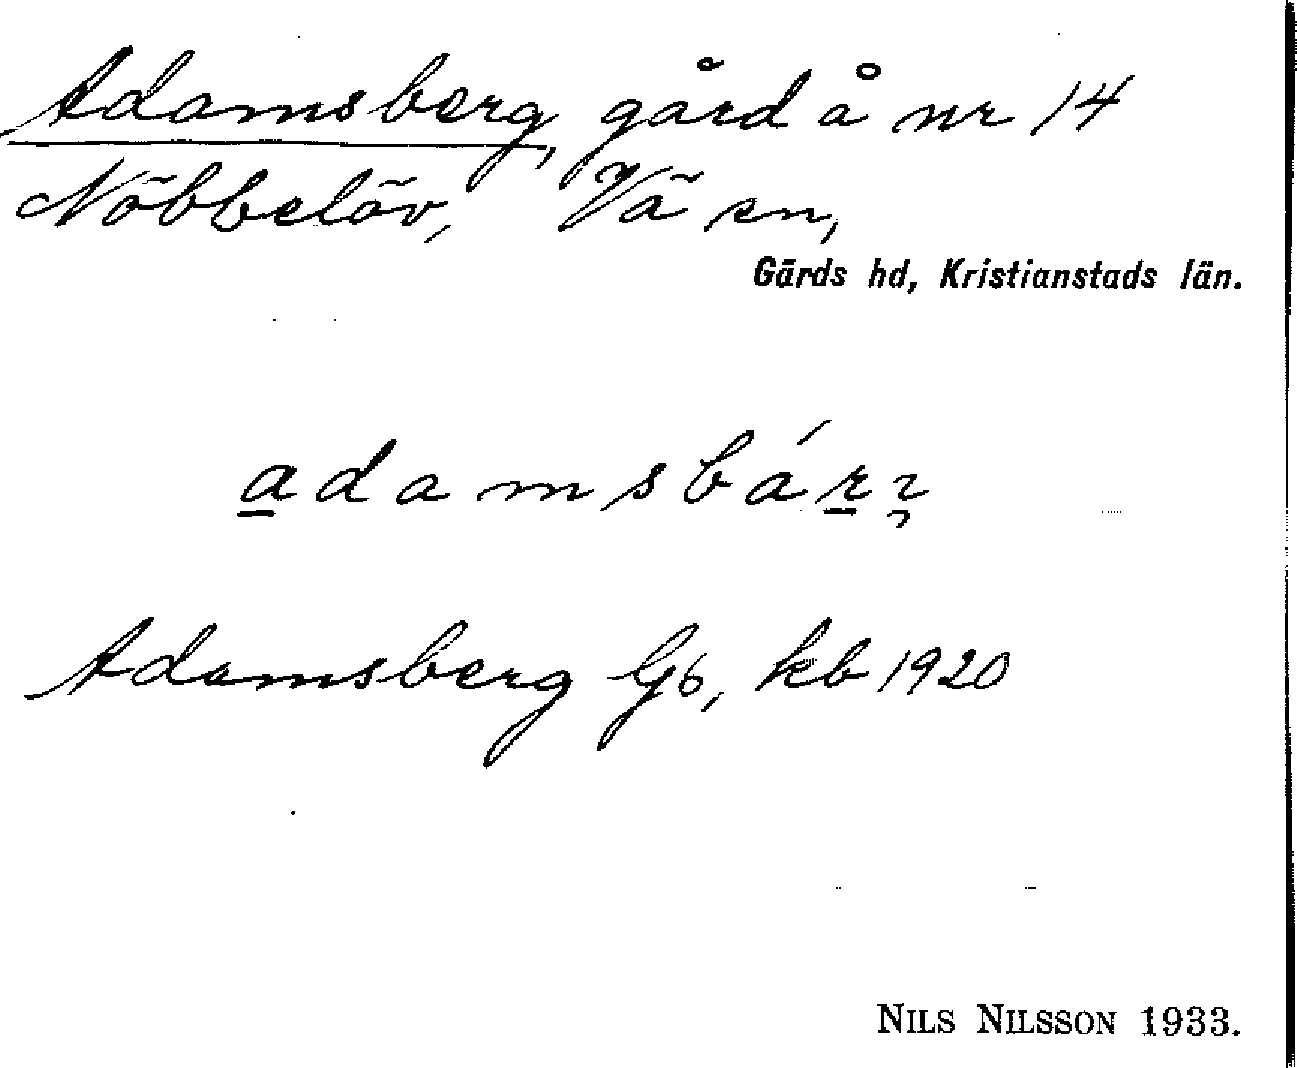 Adamsberg, gård å nr 14
Nöbbelöv, Vä sn,
Gärds hd, Kristianstads län.
Adamsberg Gb, kb 1920
NILS NILSSON 1933.